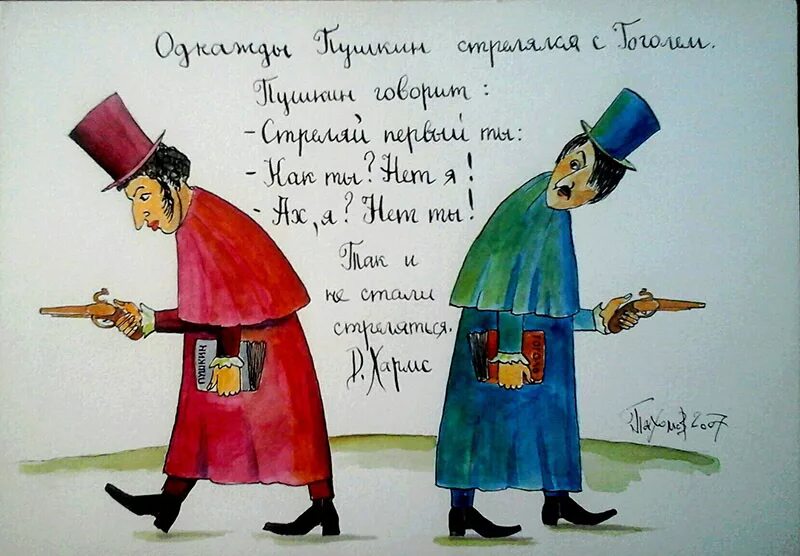 Однажды Пушкин стрелялся с Гоголем.
Пушкин говорит:
- Стреляй первый ты:
- Как ты? Нет я!
- Ах, я? Нет ты!
Так и
не стали
стреляться.
Д. Хармс
ПУШКИН
ГОГОЛЬ
Пахомов 2007